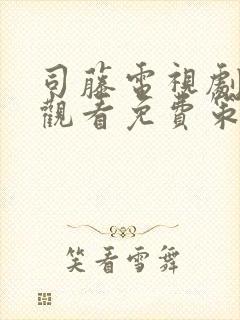 司藤電視劇
觀看免費策
笑看雪舞